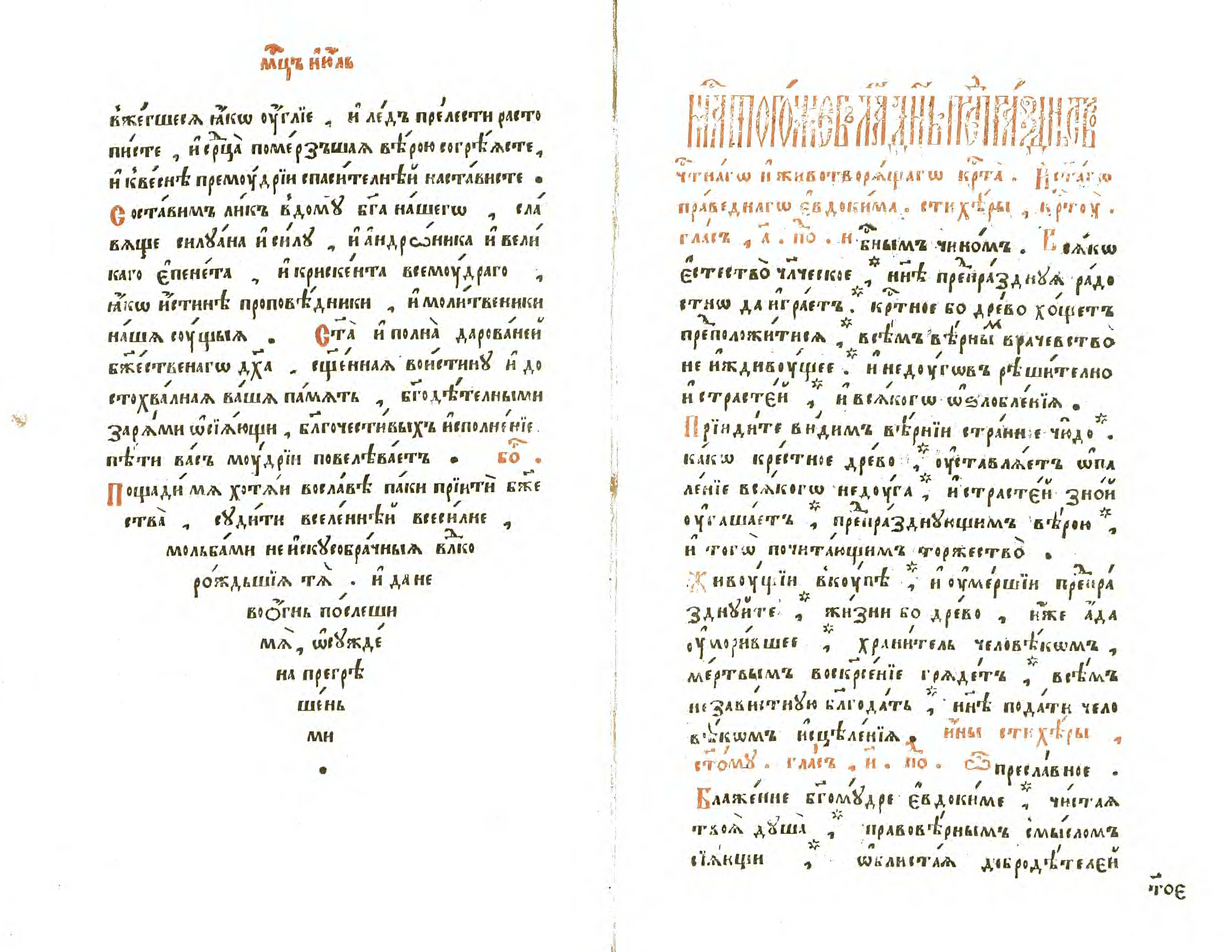 мⷭ҇цъ і҆ю́ль
вже́гшеся ꙗ҆́кѡ ᲂу҆́глїе , и҆ ле́дъ пре́лести расто
пи́сте , и҆ срⷣца̀ поме́рзъшаꙗ вѣ́рою согрѣ́ѧсте,
и҆ к̾ве́снѣ премᲂу́дрїи спаси́телнѣй наста́висте •
Соста́вимъ ли́къ вдомꙋ̀ бг҃а на́шегѡ , сла́
вѧще силꙋа́на и҆ си́лꙋ , и҆ а҆ндрѡ́ника и҆ вели́
каго є҆пене́та , и҆ криске́нта всемᲂу́драго ,
ꙗ҆́кѡ и҆́стинѣ проповѣ́дники , и҆ моли́твеники
на́шѧ сᲂу́щыѧ • Ст҃а̀ и҆ полна̀ дарова́ней
бж҃е́ственагѡ дх҃а , сщ҃е́нная вои́стинꙋ и҆ до
стохва́лная ва́шѧ па́мять , бг҃одѣ́телными
заря́ми ѡ҆сїѧ́ющи , бл҃гочести́выхъ и҆сполне́нїе
пѣ́ти ва́съ мᲂу́дрїи повелѣва́етъ • бо́ .
Пощади́ мѧ хотѧ́и восла́вѣ па́ки прїитѝ бж҃е
ства̀ , сꙋди́ти вселе́ннѣй всеси́лне ,
мольба́ми неи҆скꙋсобра́чныѧ влⷣко
ро́ждьшїѧ тѧ̀ . и҆ да не
воо҆́гнь по́слеши
мѧ̀, ѡ҆сꙋжде́
на прегрѣ
ше́нь
ми
•
чⷭ҇тна́гѡ и҆ животворѧ́щагѡ крⷭ҇та̀ . И҆ ст҃а́гѡ
пра́веднагѡ є҆вдоки́ма . стихѣ́ры , крⷭ҇тᲂу̀ .
гла́съ , а҃ . по . нбⷭ҇нымъ чи́номъ . Всѧ́кѡ
є҆стество̀ чл҃ческое , ны́нѣ препра́зднꙋѧ ра́до
стїю да и҆гра́етъ , крⷭ҇тное бо дре́во хо́щетъ
предположи́тисѧ , всѣ́мъ вѣ́рнымъ враче́вство
не и҆ждивᲂу́щее . и҆ недᲂу́гѡвъ рѣши́телно
и҆ страсте́й , и҆ всѧ́кого ѡ҆ѕлобле́нїѧ .
Прїиди́те ви́димъ вѣ́рнїи стра́нное чю́до .
ка́кѡ кре́стное дре́во , ᲂу҆ставлѧ́етъ ѡ҆па
ле́нїе всѧ́кого недᲂу́га , и҆ страсте́й зно́й
ᲂу҆гаша́етъ , препра́зднꙋющимъ вѣ́рою ,
и҆ того̀ почита́ющимъ торжество̀ .
Живᲂу́щїи вкᲂу́пѣ , и҆ ᲂу҆ме́ршїи препра́
зднꙋ́йте , жи́зни бо дре́во , и҆́же а҆́да
ᲂу҆мори́вшее , храни́тель человѣ́кѡмъ ,
ме́ртвымъ воскрⷭ҇е́нїе грѧде́тъ , всѣ́мъ
незави́стнꙋю бл҃года́ть , ны́нѣ пода́ти чело
вѣ́кѡмъ и҆сцѣле́нїѧ . и҆́ны стихѣ́ры ,
ст҃о́мꙋ . гла́съ , и҃ . по . Ѽ пресла́вное .
Блаже́нне бг҃омꙋ́дре є҆вдоки́ме , чи́стая
твоѧ̀ дꙋша̀ , правовѣ́рнымъ смы́сломъ
сїѧ́ющи , ѡ҆блиста́ѧ доброде́телей
тое